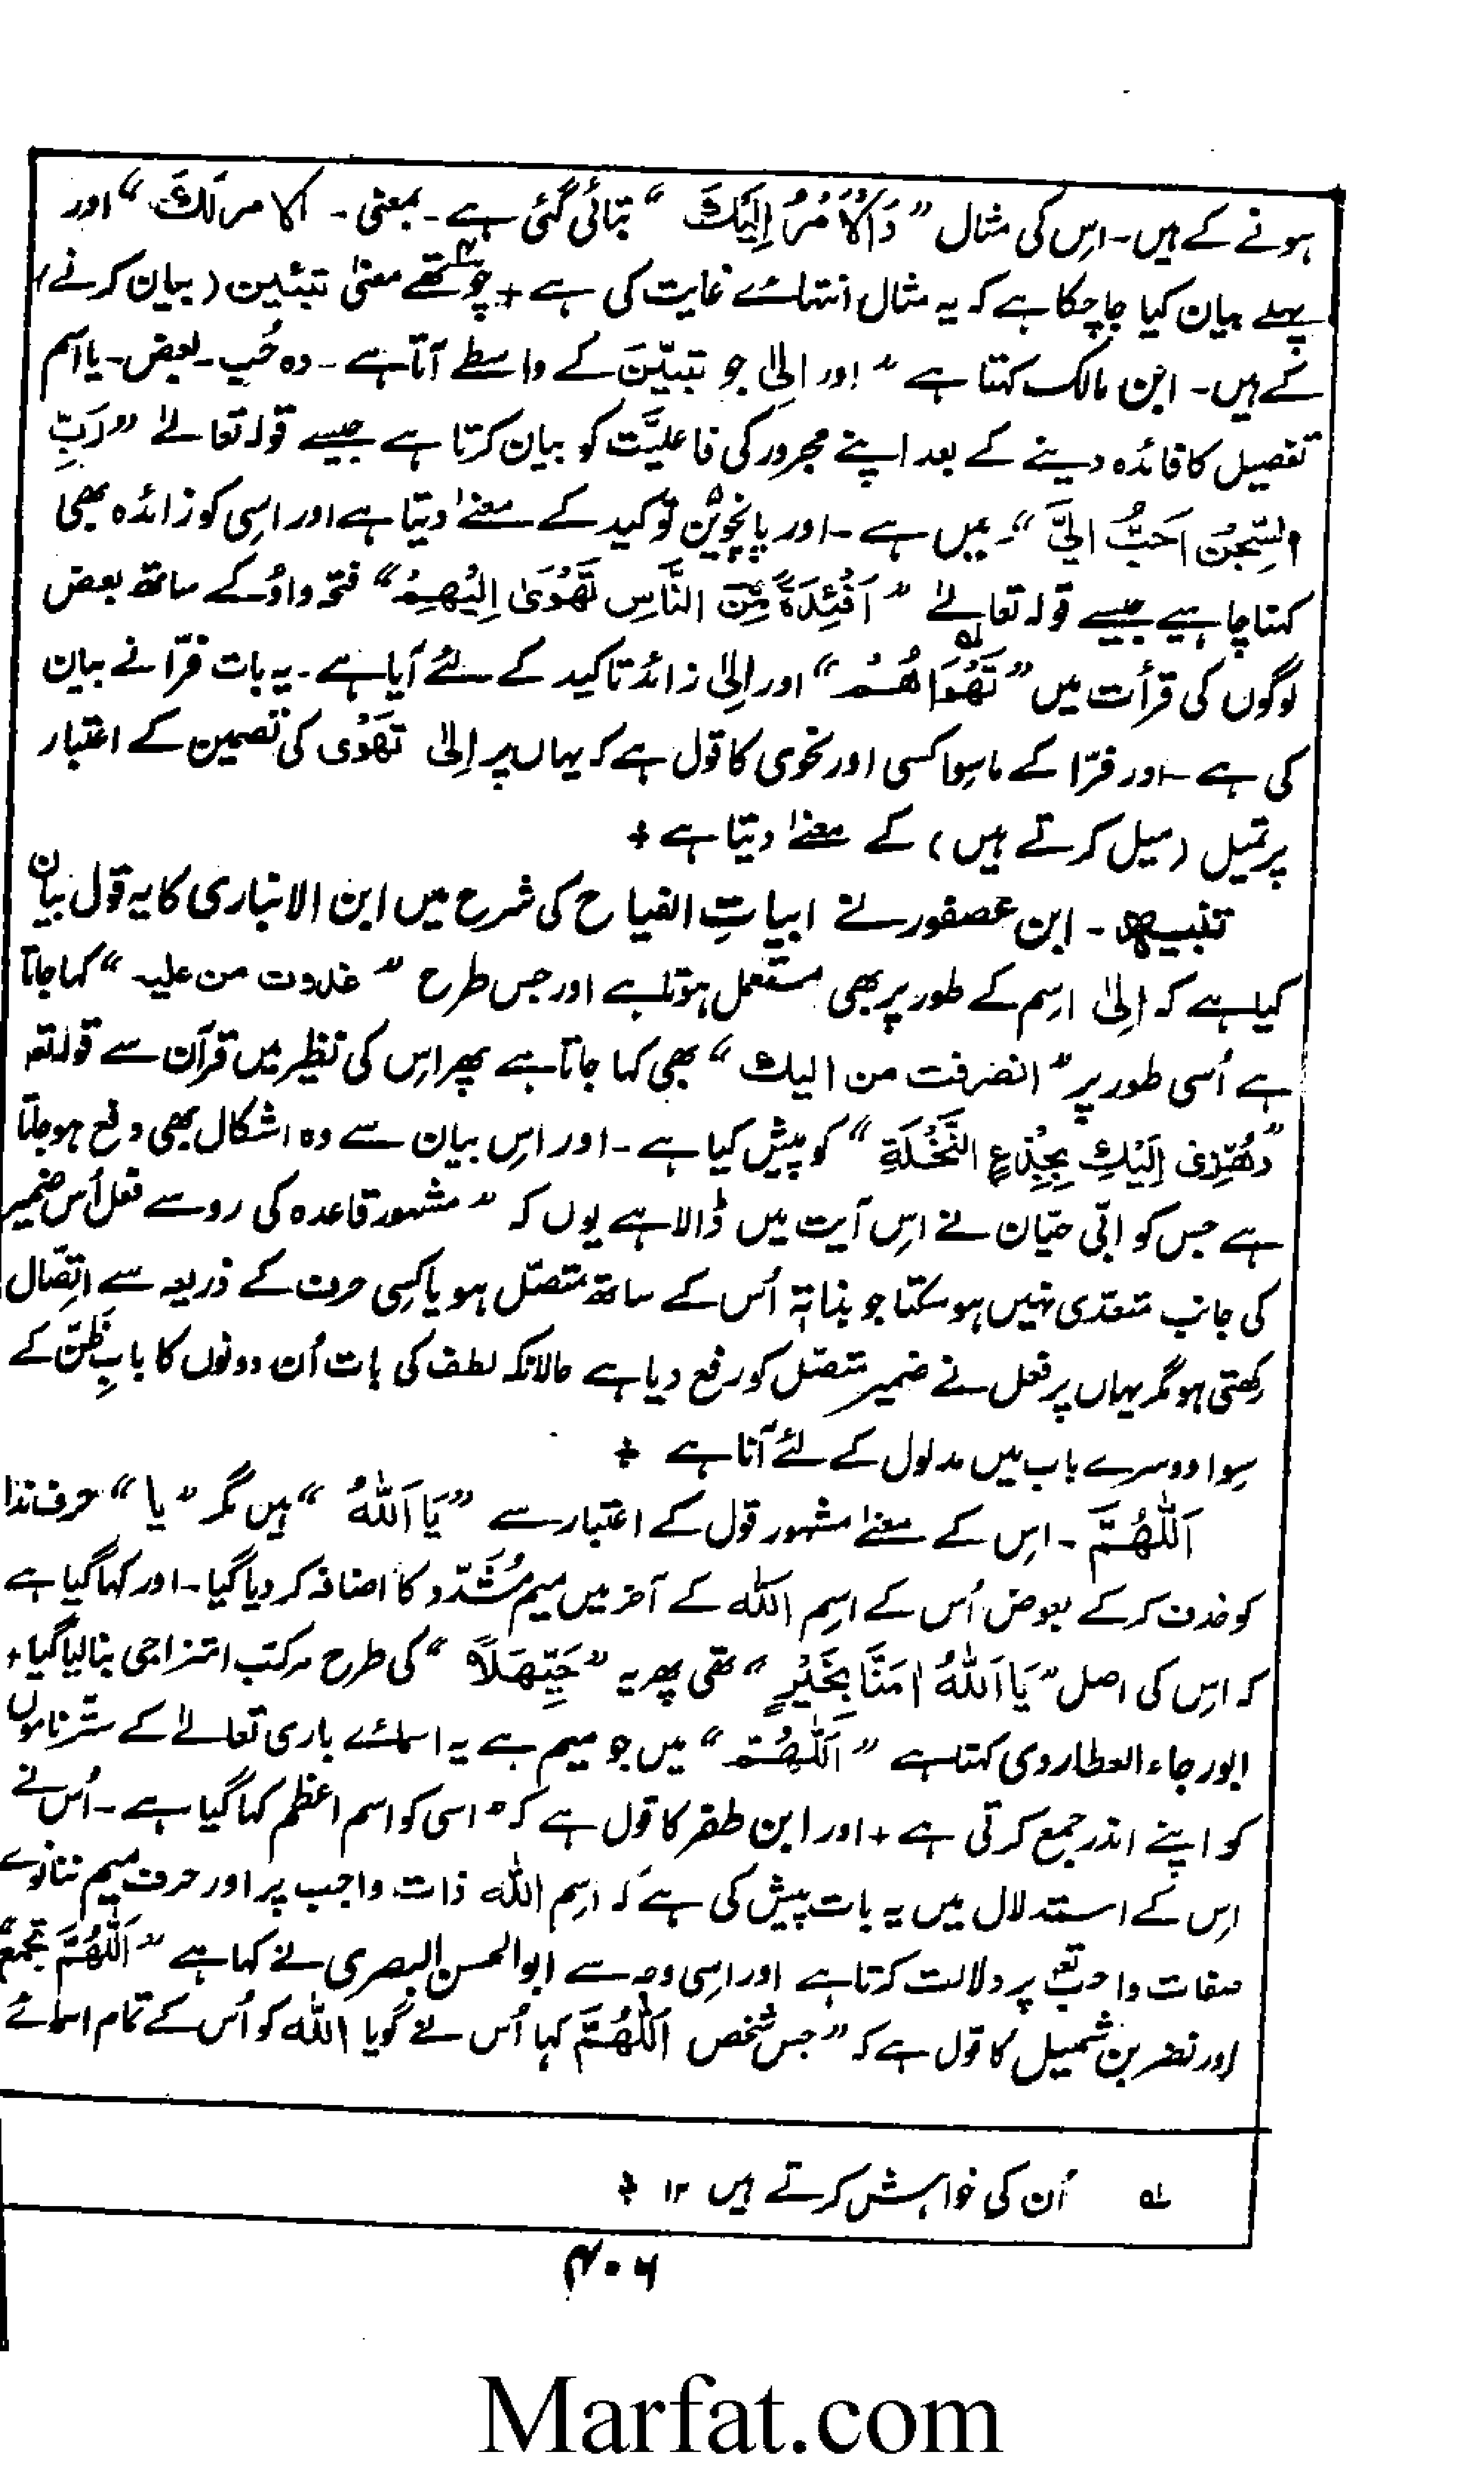 ہونے کے ہیں۔ اِس کی مثال ”وَالْاَمْرُ اِلَیْکَ“ بتائی گئی ہے۔ بمعنی۔ الامر لَکَ“ اور
پہلے بیان کیا جاچکا ہے کہ یہ مثال انتہائے غایت کی ہے + چوتھے معنیٰ تبئین (بیان کرنے)
کے ہیں۔ ابن مالک کہتا ہے ”اور اِلیٰ جو تبیّن کے واسطے آتا ہے۔ وہ حُب۔ بعض۔ یا اسم
تفصیل کا فائدہ دینے کے بعد اپنے مجرور کی فاعلیَّت کو بیان کرتا ہے جیسے قولہ تعالےٰ ”رَبِّ
السِّجْنُ اَحَبُّ اِلَیَّ“ میں ہے۔ اور پانچویں توکید کے معنےٰ دیتا ہے اور اسی کو زائدہ بھی
کہنا چاہیے جیسے قولہ تعالےٰ ”اَفْئِدَۃً مِّنَ النَّاسِ تَھْوَیٰ اِلَیْھِمْ“ فتحہ واؤ کے ساتھ بعض
لوگوں کی قرأت میں ”تَھْوَاھُمْ“ لہ اور اِلیٰ زائد تاکید کے لئے آیا ہے۔ یہ بات فرّا نے بیان
کی ہے۔ اور فرّا کے ماسوا کسی اور نحوی کا قول ہے کہ یہاں پر اِلیٰ تَھْوٰی کی تضمین کے اعتبار
پر تمیل (میل کرتے ہیں) کے معنےٰ دیتا ہے +
تنبیہ۔ ابن عصفور نے ابیاتِ الفیاح کی شرح میں ابن الانباری کا یہ قول بیان
کیا ہے کہ اِلیٰ اِسم کے طور پر بھی مستعمل ہوتا ہے اور جس طرح ”غدوت من علیہ“ کہا جاتا
ہے اُسی طور پر ”انصرفت من الیک“ بھی کہا جاتا ہے پھر اِس کی نظیر میں قرآن سے قولہ تعہ
”وَھُزِّیْ اِلَیْکِ بِجِذْعِ النَّخْلَۃِ“ کو پیش کیا ہے۔ اور اِس بیان سے وہ اشکال بھی دفع ہو جاتا
ہے جس کو ابی حیّان نے اِس آیت میں ڈالا ہے یوں کہ ”مشہور قاعدہ کی رو سے فعل اُس ضمیر
کی جانب متعدّی نہیں ہو سکتا جو بذاتہٖ اُس کے ساتھ متصّل ہو یا کِسی حرف کے ذریعہ سے اتّصال
رکھتی ہو مگر یہاں پر فعل نے ضمیر متصّل کو رفع دیا ہے حالانکہ لطف کی بات اُن دونوں کا بابِ ظَنَّ کے
سِوا دوسرے باب میں مدلول کے لئے آنا ہے +
اَللّٰھُمَّ۔ اِس کے معنےٰ مشہور قول کے اعتبار سے ”یَا اَللّٰہُ“ ہیں مگر ”یا“ حرف ندا
کو حذف کر کے بعوض اُس کے اسِم اللّٰہ کے آخر میں میم مُشَدَّد کا اضافہ کر دیا گیا۔ اور کہا گیا ہے
کہ اِس کی اصل ”یَا اَللّٰہُ اٰمَنَّا بِخَیْرٍ“ تھی پھر یہ ”حَیَّھَلَاً“ کی طرح مرکّب امتزاجی بنالیا گیا +
ابورجاء العطاروی کہتا ہے ”اَللّٰھُمَّ“ میں جو میم ہے یہ اسمائے باری تعالےٰ کے ستّر ناموں
کو اپنے اندر جمع کرتی ہے + اور ابن ظفر کا قول ہے کہ ”اسی کو اسم اعظم کہا گیا ہے۔ اُس نے
اِس کے استدلال میں یہ بات پیش کی ہے کہ اسِم اللّٰہ ذات واجب پر اور حرف میم ننانوے
صفات واجب تعہ پر دلالت کرتا ہے اور اسِی وجہ سے ابوالحسن البصری نے کہا ہے ”اَللّٰھُمَّ تجمع“
اور نضر بن شمیل کا قول ہے کہ ”جس شخص اَللّٰھُمَّ کہا اُس نے گویا اللّٰہ کو اُس کے تمام اسمائے
لہ اُن کی خواہش کرتے ہیں ۱۲ +
۴۰۶
Marfat.com